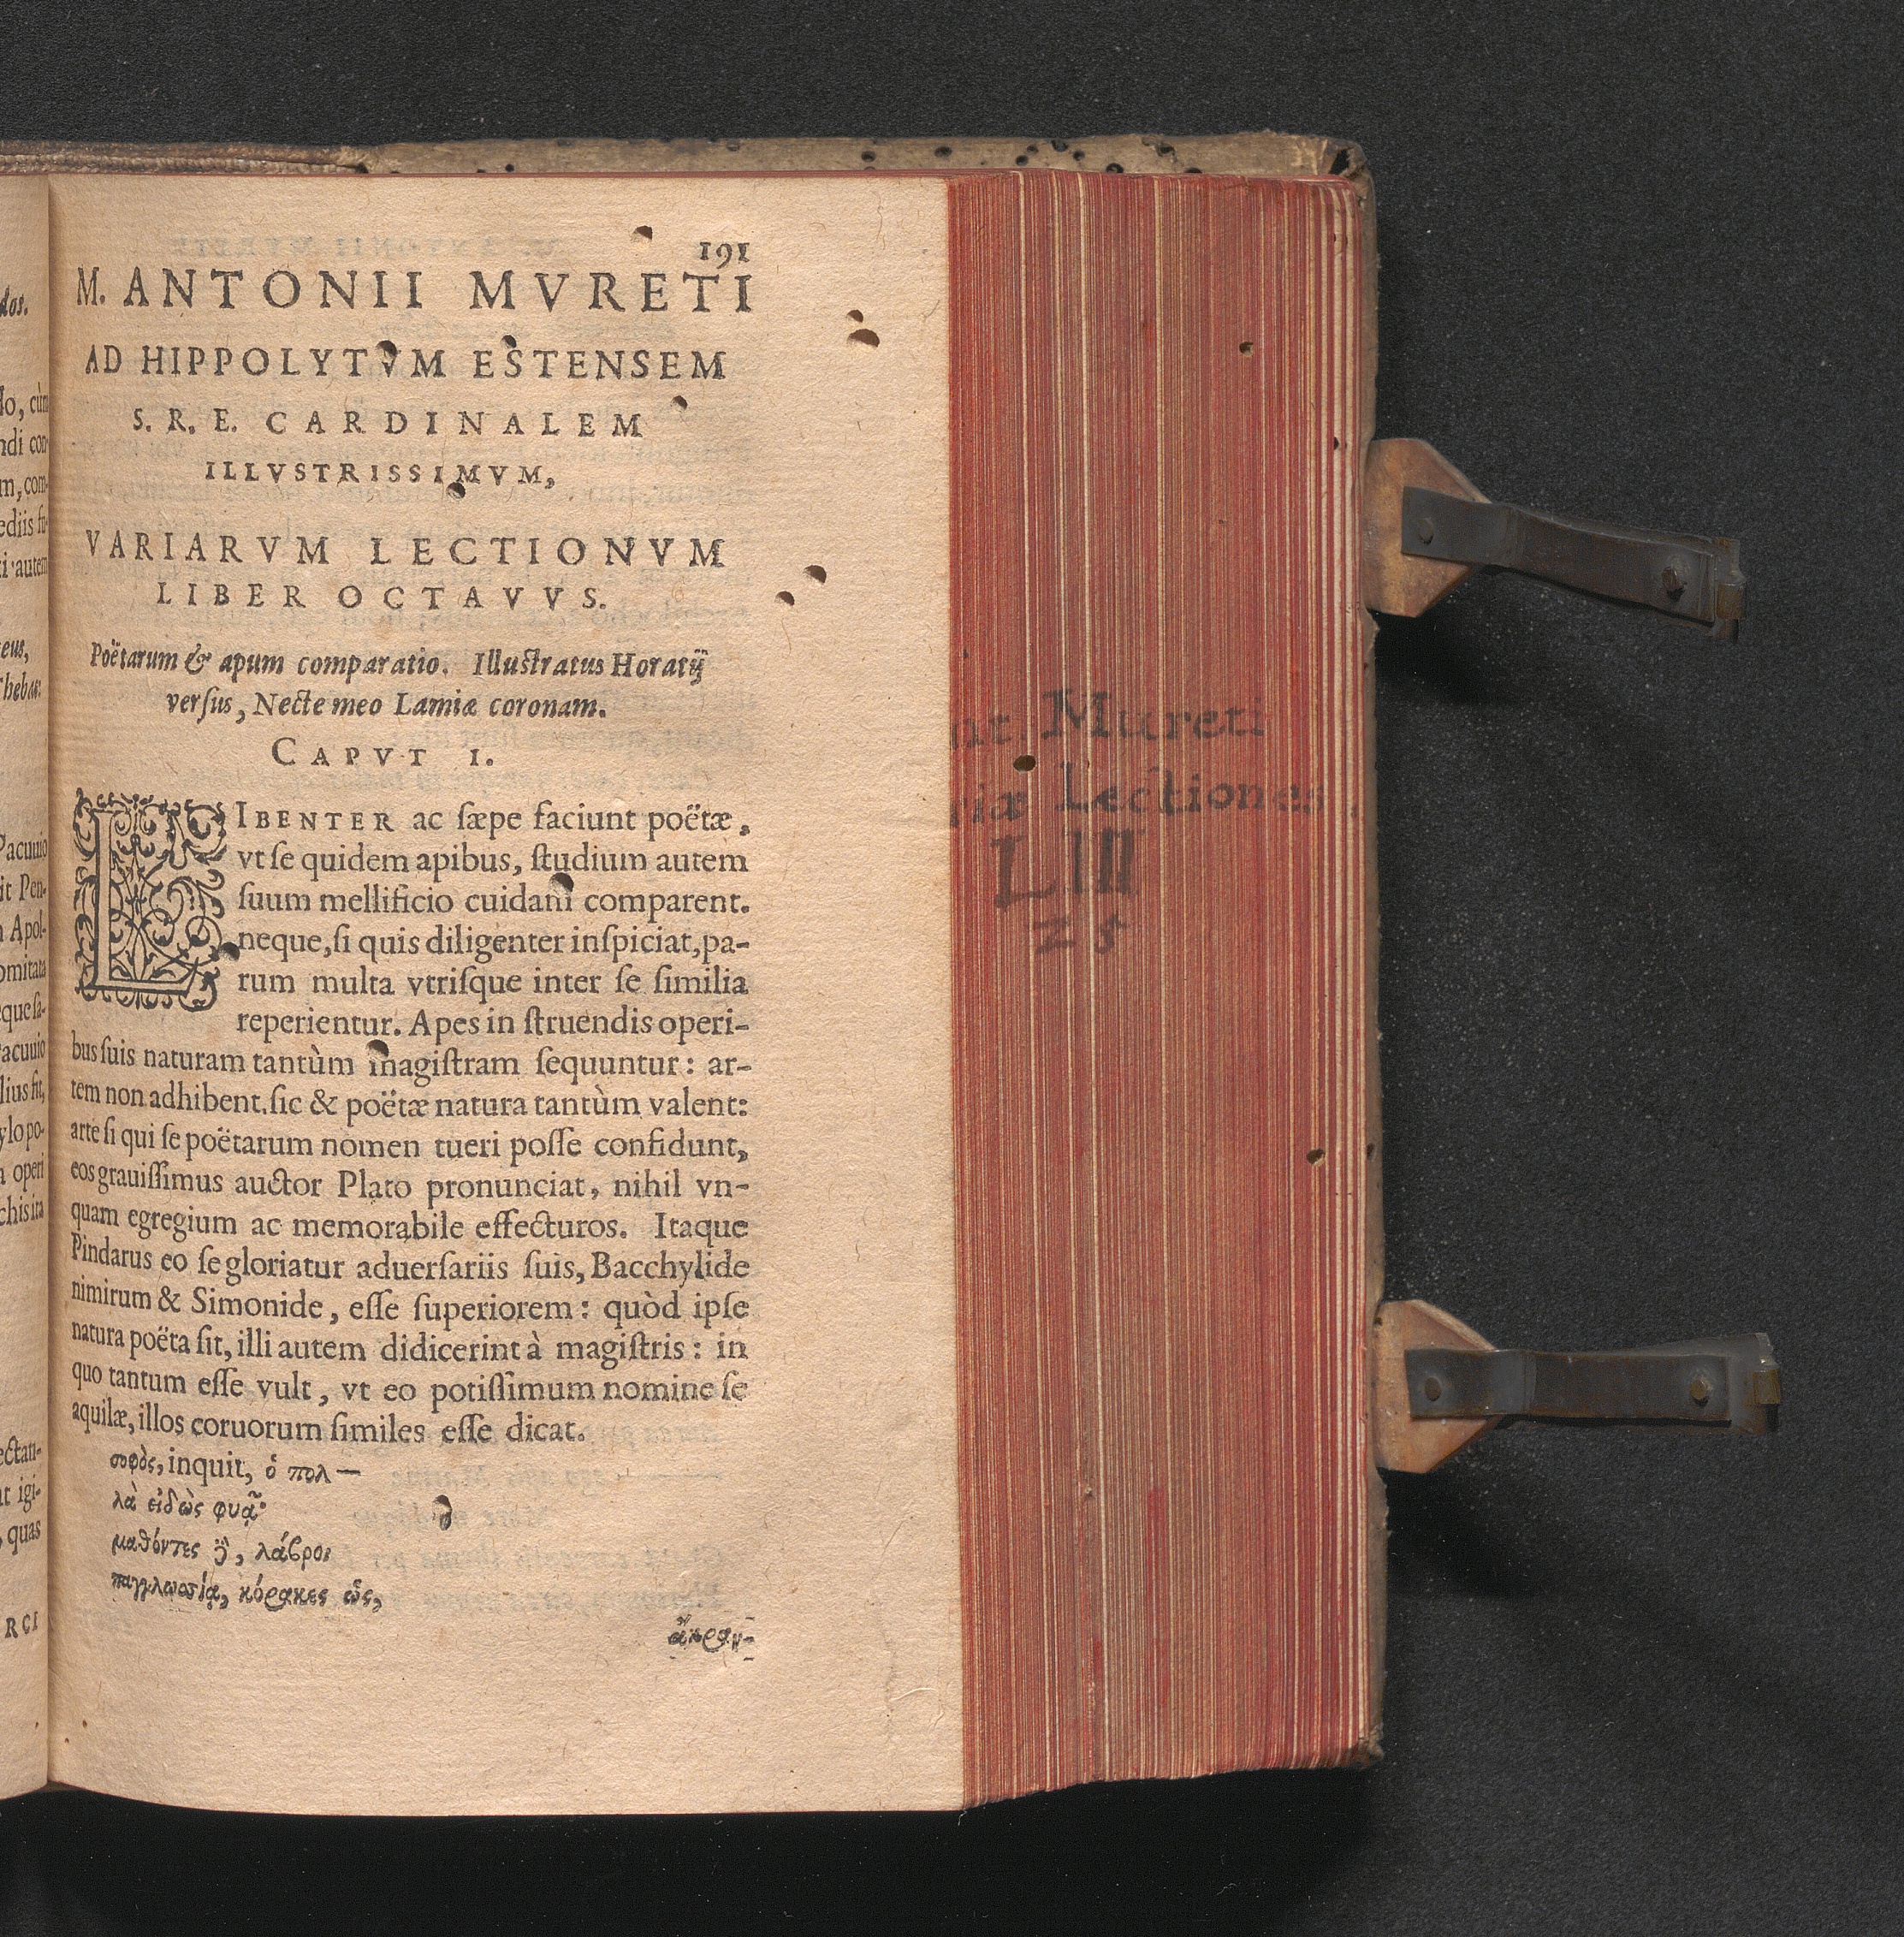 191
M. ANTONII MVRETI
AD HIPPOLYTVM ESTENSEM
S. R. E. CARDINALEM
ILLVSTRISSIMVM,
VARIARVM LECTIONVM
LIBER OCTAVVS.
Poëtarum & apum comparatio. Illustratus Horatij
versus, Necte meo Lamiæ coronam.
CAPVT I.
LIBENTER ac sæpe faciunt poëtæ,
vt se quidem apibus, studium autem
suum mellificio cuidam comparent.
neque, si quis diligenter inspiciat, pa-
rum multa vtrisque inter se similia
reperientur. Apes in struendis operi-
bus suis naturam tantùm magistram sequuntur: ar-
tem non adhibent. sic & poëtæ natura tantùm valent:
arte si qui se poëtarum nomen tueri posse confidunt,
eos grauissimus auctor Plato pronunciat, nihil vn-
quam egregium ac memorabile effecturos. Itaque
Pindarus eo se gloriatur aduersariis suis, Bacchylide
nimirum & Simonide, esse superiorem: quòd ipse
natura poëta sit, illi autem didicerint à magistris: in
quo tantum esse vult, vt eo potissimum nomine se
aquilæ, illos coruorum similes esse dicat.
σοφὸς, inquit, ὁ πολ—
λὰ εἰδὼς φυᾷ·
μαθόντες δὲ, λάβροι
παγγλωσσίᾳ, κόρακες ὣς,
ἄκραν-
nt. Mureti
riæ Lectiones
L III
25
dos.
lo, cùm
ndi con-
m, com-
ediis fu-
ti autem
eus,
Thebas:
Pacuuio
it Pen-
n Apol-
omitata
eque sa-
acuuio
lius fit,
ylo po-
a operi
chis ita
ectati-
nt igi-
, quas
RCI